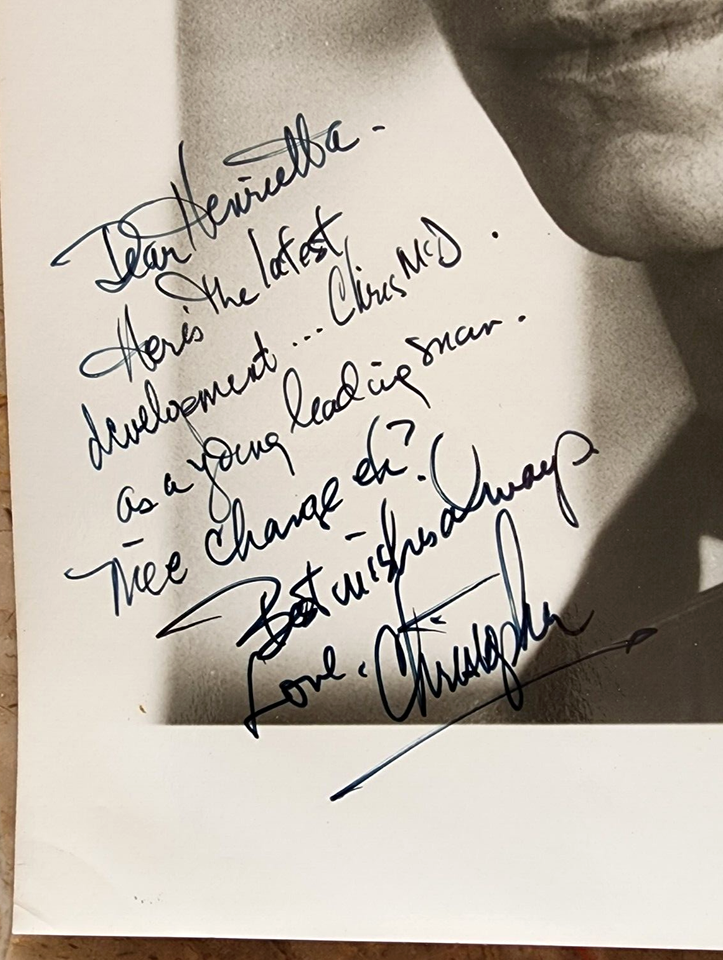 Dear Henrietta -
Here's the latest
development... Chris McD.
as a young leading man.
Nice change eh?
Best wishes always.
Love, Christopher